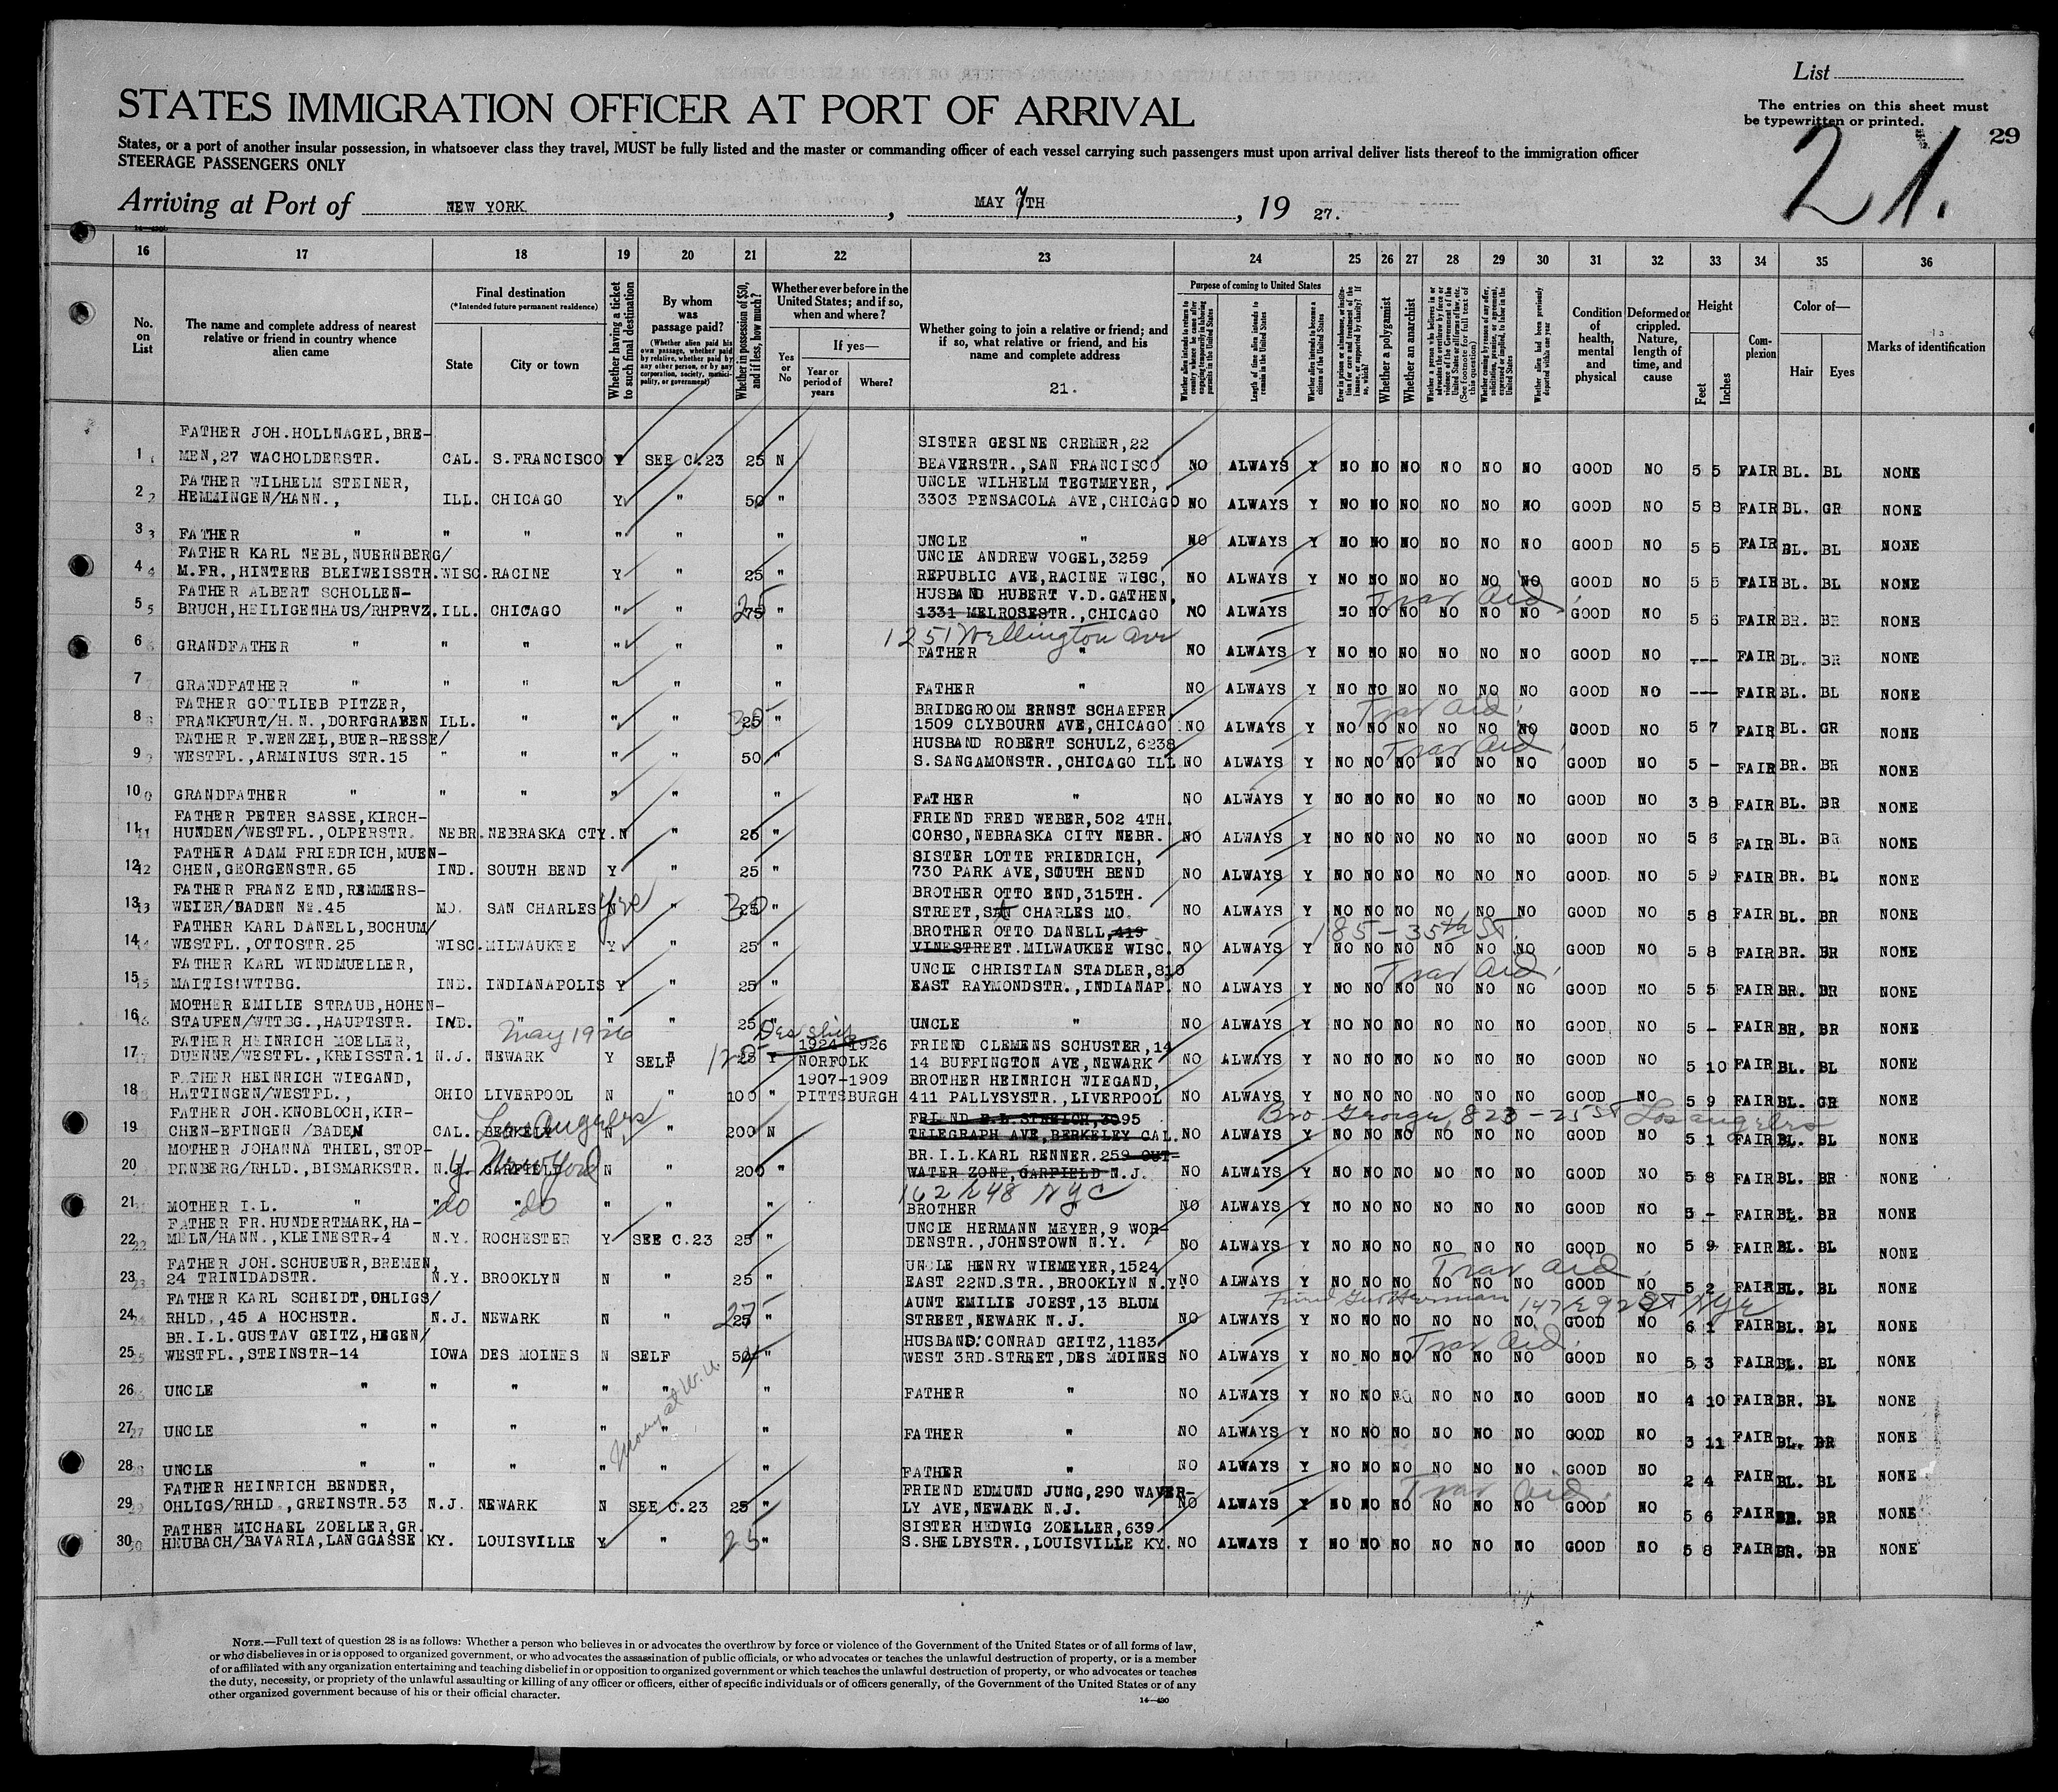 List
The entries on this sheet must
be typewritten or printed.
29
21.
STATES IMMIGRATION OFFICER AT PORT OF ARRIVAL
States, or a port of another insular possession, in whatsoever class they travel, MUST be fully listed and the master or commanding officer of each vessel carrying such passengers must upon arrival deliver lists thereof to the immigration officer
STEERAGE PASSENGERS ONLY
Arriving at Port of NEW YORK , MAY 7TH , 19 27.
16 17 18 19 20 21 22 23 24 25 26 27 28 29 30 31 32 33 34 35 36
No. on List
The name and complete address of nearest relative or friend in country whence alien came
Final destination
(*Intended future permanent residence)
State
City or town
Whether having a ticket to such final destination
By whom was passage paid?
(Whether alien paid his own passage, whether paid by relative, whether paid by any other person, or by any corporation, society, municipality, or government)
Whether in possession of $50, and if less, how much?
Whether ever before in the United States; and if so, when and where?
Yes or No
If yes—
Year or period of years
Where?
Whether going to join a relative or friend; and if so, what relative or friend, and his name and complete address
21.
Purpose of coming to United States
Length of time alien intends to remain in the United States
Whether alien intends to become a citizen of the United States
Whether a polygamist
Whether an anarchist
Condition of health, mental and physical
Deformed or crippled. Nature, length of time, and cause
Height
Feet
Inches
Complexion
Color of—
Hair
Eyes
Marks of identification
FATHER JOH.HOLLNAGEL,BRE- SISTER GESINE CREMER,22
1 MEN,27 WACHOLDERSTR. CAL. S.FRANCISCO Y SEE C.23 25 N BEAVERSTR.,SAN FRANCISCO NO ALWAYS Y NO NO NO NO NO NO GOOD NO 5 5 FAIR BL. BL NONE
FATHER WILHELM STEINER, UNCLE WILHELM TEGTMEYER,
2 HEMMINGEN/HANN., ILL. CHICAGO Y " 50 " 3303 PENSACOLA AVE,CHICAGO NO ALWAYS Y NO NO NO NO NO NO GOOD NO 5 8 FAIR BL. GR NONE
3 FATHER " " " " " " UNCLE " NO ALWAYS Y NO NO NO NO NO NO GOOD NO 5 5 FAIR BL. BL NONE
FATHER KARL NEBL,NUERNBERG/ UNCLE ANDREW VOGEL,3259
4 M.FR.,HINTERE BLEIWEISSTR. WISC. RACINE Y " 25 " REPUBLIC AVE,RACINE WISC, NO ALWAYS Y NO NO NO NO NO NO GOOD NO 5 5 FAIR BL. BL NONE
FATHER ALBERT SCHOLLEN- HUSBAND HUBERT V.D.GATHEN, Trav Aid
5 BRUCH,HEILIGENHAUS/RHPRVZ. ILL. CHICAGO " " 25 " 1331 MELROSESTR.,CHICAGO NO ALWAYS NO NO NO NO NO NO GOOD NO 5 6 FAIR BR. BR NONE
1251 Wellington Ave
6 GRANDFATHER " " " " " " FATHER " NO ALWAYS Y NO NO NO NO NO NO GOOD NO --- FAIR BL. BR NONE
7 GRANDFATHER " " " " " " FATHER " NO ALWAYS Y NO NO NO NO NO NO GOOD NO --- FAIR BL. BL NONE
FATHER GOTTLIEB PITZER, BRIDEGROOM ERNST SCHAEFER, Trav Aid
8 FRANKFURT/H.N.,DORFGRABEN ILL. " " " 25 " 1509 CLYBOURN AVE,CHICAGO NO ALWAYS Y NO NO NO NO NO NO GOOD NO 5 7 FAIR BL. GR NONE
FATHER F.WENZEL,BUER-RESSE/ HUSBAND ROBERT SCHULZ,6238 Trav Aid
9 WESTFL.,ARMINIUS STR.15 " " " " 50 " S.SANGAMONSTR.,CHICAGO ILL NO ALWAYS Y NO NO NO NO NO NO GOOD NO 5 - FAIR BR. BR NONE
10 GRANDFATHER " " " " " " FATHER " NO ALWAYS Y NO NO NO NO NO NO GOOD NO 3 8 FAIR BL. BR NONE
FATHER PETER SASSE,KIRCH- FRIEND FRED WEBER,502 4TH.
11 HUNDEN/WESTFL.,OLPERSTR. NEBR. NEBRASKA CTY. N " 25 " CORSO,NEBRASKA CITY NEBR. NO ALWAYS Y NO NO NO NO NO NO GOOD NO 5 6 FAIR BL. BR NONE
FATHER ADAM FRIEDRICH,MUEN- SISTER LOTTE FRIEDRICH,
12 CHEN,GEORGENSTR.65 IND. SOUTH BEND Y " 25 " 730 PARK AVE,SOUTH BEND NO ALWAYS Y NO NO NO NO NO NO GOOD NO 5 9 FAIR BR. BL NONE
FATHER FRANZ END,REMMERS- BROTHER OTTO END,315TH.
13 WEIER/BADEN No.45 MO. SAN CHARLES N yes " 30 " STREET,SAN CHARLES MO. NO ALWAYS Y NO NO NO NO NO NO GOOD NO 5 8 FAIR BL. BR NONE
FATHER KARL DANELL,BOCHUM/ BROTHER OTTO DANELL,419 185-35th St.
14 WESTFL.,OTTOSTR.25 WISC. MILWAUKEE Y " 25 " VINESTREET.MILWAUKEE WISC. NO ALWAYS Y NO NO NO NO NO NO GOOD NO 5 8 FAIR BR. BR NONE
FATHER KARL WINDMUELLER, UNCLE CHRISTIAN STADLER,810 Trav Aid
15 MAITIS!WTTBG. IND. INDIANAPOLIS Y " 25 " EAST RAYMONDSTR.,INDIANAP. NO ALWAYS Y NO NO NO NO NO NO GOOD NO 5 5 FAIR BR. BR NONE
MOTHER EMILIE STRAUB,HOHEN-
16 STAUFEN/WTTBG.,HAUPTSTR. IND. " " " 25 " UNCLE " NO ALWAYS Y NO NO NO NO NO NO GOOD NO 5 - FAIR BR. BR NONE
May 1926 Des ship
FATHER HEINRICH MOELLER, 1924-1926 FRIEND CLEMENS SCHUSTER,14
17 DUENNE/WESTFL.,KREISSTR.1 N.J. NEWARK Y SELF 120 25 Y NORFOLK 14 BUFFINGTON AVE,NEWARK NO ALWAYS Y NO NO NO NO NO NO GOOD NO 5 10 FAIR BL. BL NONE
FATHER HEINRICH WIEGAND, 1907-1909 BROTHER HEINRICH WIEGAND,
18 HATTINGEN/WESTFL., OHIO LIVERPOOL N " 100 PITTSBURGH 411 PALLYSYSTR.,LIVERPOOL NO ALWAYS Y NO NO NO NO NO NO GOOD NO 5 9 FAIR BL. GR NONE
FATHER JOH.KNOBLOCH,KIR- Los Angeles FRIEND 3095 Bro George, 823-25 St Los angeles
19 CHEN-EFINGEN /BADEN CAL. BERKELY N " 200 N TELEGRAPH AVE,BERKELEY CAL. NO ALWAYS Y NO NO NO NO NO NO GOOD NO 5 1 FAIR BL. BL NONE
MOTHER JOHANNA THIEL,STOP- New York BR.I.L.KARL RENNER.259 OUT-
20 PENBERG/RHLD.,BISMARKSTR. N.J. GARFIELD N " 200 " WATER ZONE,GARFIELD N.J. NO ALWAYS Y NO NO NO NO NO NO GOOD NO 5 8 FAIR BL. BR NONE
162 E 48 NYC
21 MOTHER I.L. " " do " do " " " BROTHER " NO ALWAYS Y NO NO NO NO NO NO GOOD NO 5 - FAIR BL. BR NONE
FATHER FR.HUNDERTMARK,HA- UNCLE HERMANN MEYER,9 WOR-
22 MELN/HANN.,KLEINESTR.4 N.Y. ROCHESTER Y SEE C.23 25 " DENSTR.,JOHNSTOWN N.Y. NO ALWAYS Y NO NO NO NO NO NO GOOD NO 5 9 FAIR BL. BL NONE
FATHER JOH.SCHUEUER,BREMEN, UNCLE HENRY WIEMEYER,1524 Trav Aid
23 24 TRINIDADSTR. N.Y. BROOKLYN N " 25 " EAST 22ND.STR.,BROOKLYN N.Y. NO ALWAYS Y NO NO NO NO NO NO GOOD NO 5 2 FAIR BL. BL NONE
FATHER KARL SCHEIDT,OHLIGS/ AUNT EMILIE JOEST,13 BLUM Friend Geo Herman 147 E 92 St NYC
24 RHLD.,45 A HOCHSTR. N.J. NEWARK N " 25 " STREET,NEWARK N.J. NO ALWAYS Y NO NO NO NO NO NO GOOD NO 6 1 FAIR BL. BL NONE
BR.I.L.GUSTAV GEITZ,HEGEN/ HUSBAND:CONRAD GEITZ,1183 Trav Aid
25 WESTFL.,STEINSTR-14 IOWA DES MOINES N SELF 50 " WEST 3RD.STREET,DES MOINES NO ALWAYS Y NO NO NO NO NO NO GOOD NO 5 3 FAIR BL. BL NONE
26 UNCLE " " " " " " FATHER " NO ALWAYS Y NO NO NO NO NO NO GOOD NO 4 10 FAIR BR. BL NONE
Money at W.U
27 UNCLE " " " " " " FATHER " NO ALWAYS Y NO NO NO NO NO NO GOOD NO 3 11 FAIR BL. BR NONE
28 UNCLE " " " " " " FATHER " NO ALWAYS Y NO NO NO NO NO NO GOOD NO 2 4 FAIR BL. BL NONE
FATHER HEINRICH BENDER, FRIEND EDMUND JUNG,290 WAVER- Trav Aid
29 OHLIGS/RHLD.,GREINSTR.53 N.J. NEWARK N SEE C.23 25 " LY AVE,NEWARK N.J. NO ALWAYS Y NO NO NO NO NO NO GOOD NO 5 6 FAIR BR. BR NONE
FATHER MICHAEL ZOELLER,GR. SISTER HEDWIG ZOELLER,639
30 HEUBACH/BAVARIA,LANGGASSE KY. LOUISVILLE Y " 25 " S.SHELBYSTR.,LOUISVILLE KY. NO ALWAYS Y NO NO NO NO NO NO GOOD NO 5 8 FAIR BR. BR NONE
NOTE.—Full text of question 28 is as follows: Whether a person who believes in or advocates the overthrow by force or violence of the Government of the United States or of all forms of law,
or who disbelieves in or is opposed to organized government, or who advocates the assassination of public officials, or who advocates or teaches the unlawful destruction of property, or is a member
of or affiliated with any organization entertaining and teaching disbelief in or opposition to organized government or which teaches the unlawful destruction of property, or who advocates or teaches
the duty, necessity, or propriety of the unlawful assaulting or killing of any officer or officers, either of specific individuals or of officers generally, of the Government of the United States or of any
other organized government because of his or their official character.
14—420